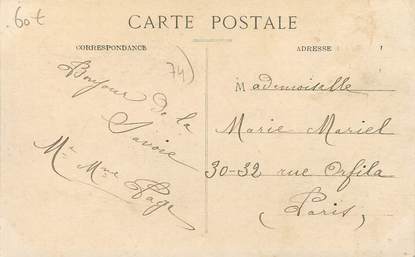 60t
CARTE POSTALE
CORRESPONDANCE
ADRESSE
74)
Bonjour de la
Savoie
Mr Mme Page
Mademoiselle
Marie Mariel
30-32 rue Orfila
(Paris)